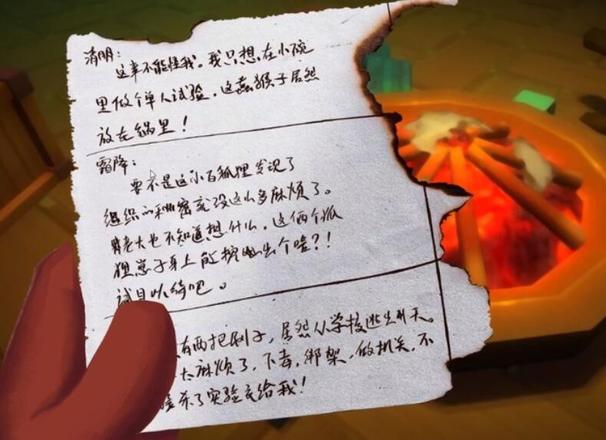 清明：
这车不能怪我。我只想在小碗
里做个单人试验，这蠢猴子居然
放在锅里！
霜降：
要不是这小白狐狸发现了
组织的秘密交没这么多麻烦了。
老大也不知道想什么，这俩个狐
狸崽子身上能挖出个啥？！
试
吧。
有两把刷子，居然从学校逃出升天。
太麻烦了，下毒，绑架，做机关，不
杀了实验交给我！